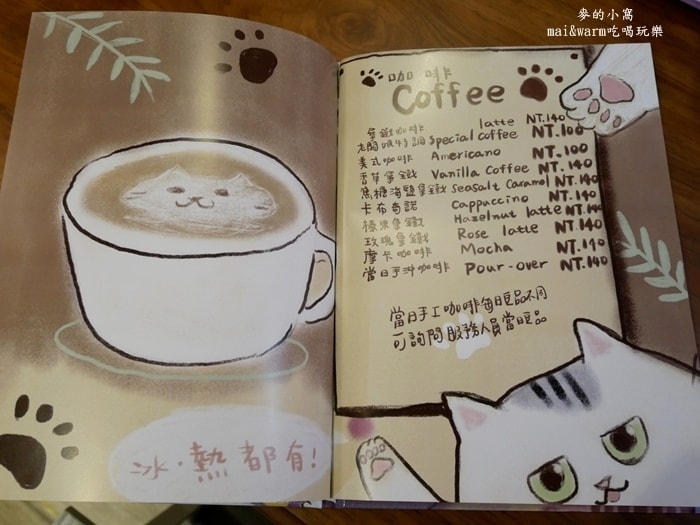 麥的小窩
mai&warm吃喝玩樂
冰‧熱都有!
咖啡
Coffee
拿鐵咖啡 latte NT.140
老闆娘特調 Special coffee NT.100
美式咖啡 Americano NT.100
香草拿鐵 Vanilla Coffee NT.140
焦糖海鹽拿鐵 Seasalt Caramel NT.140
卡布奇諾 Cappuccino NT.140
榛果拿鐵 Hazelnut latte NT.140
玫瑰拿鐵 Rose latte NT.140
摩卡咖啡 Mocha NT.140
當日手沖咖啡 Pour-over NT.140
當日手工咖啡每日豆品不同
可詢問服務人員當日豆品